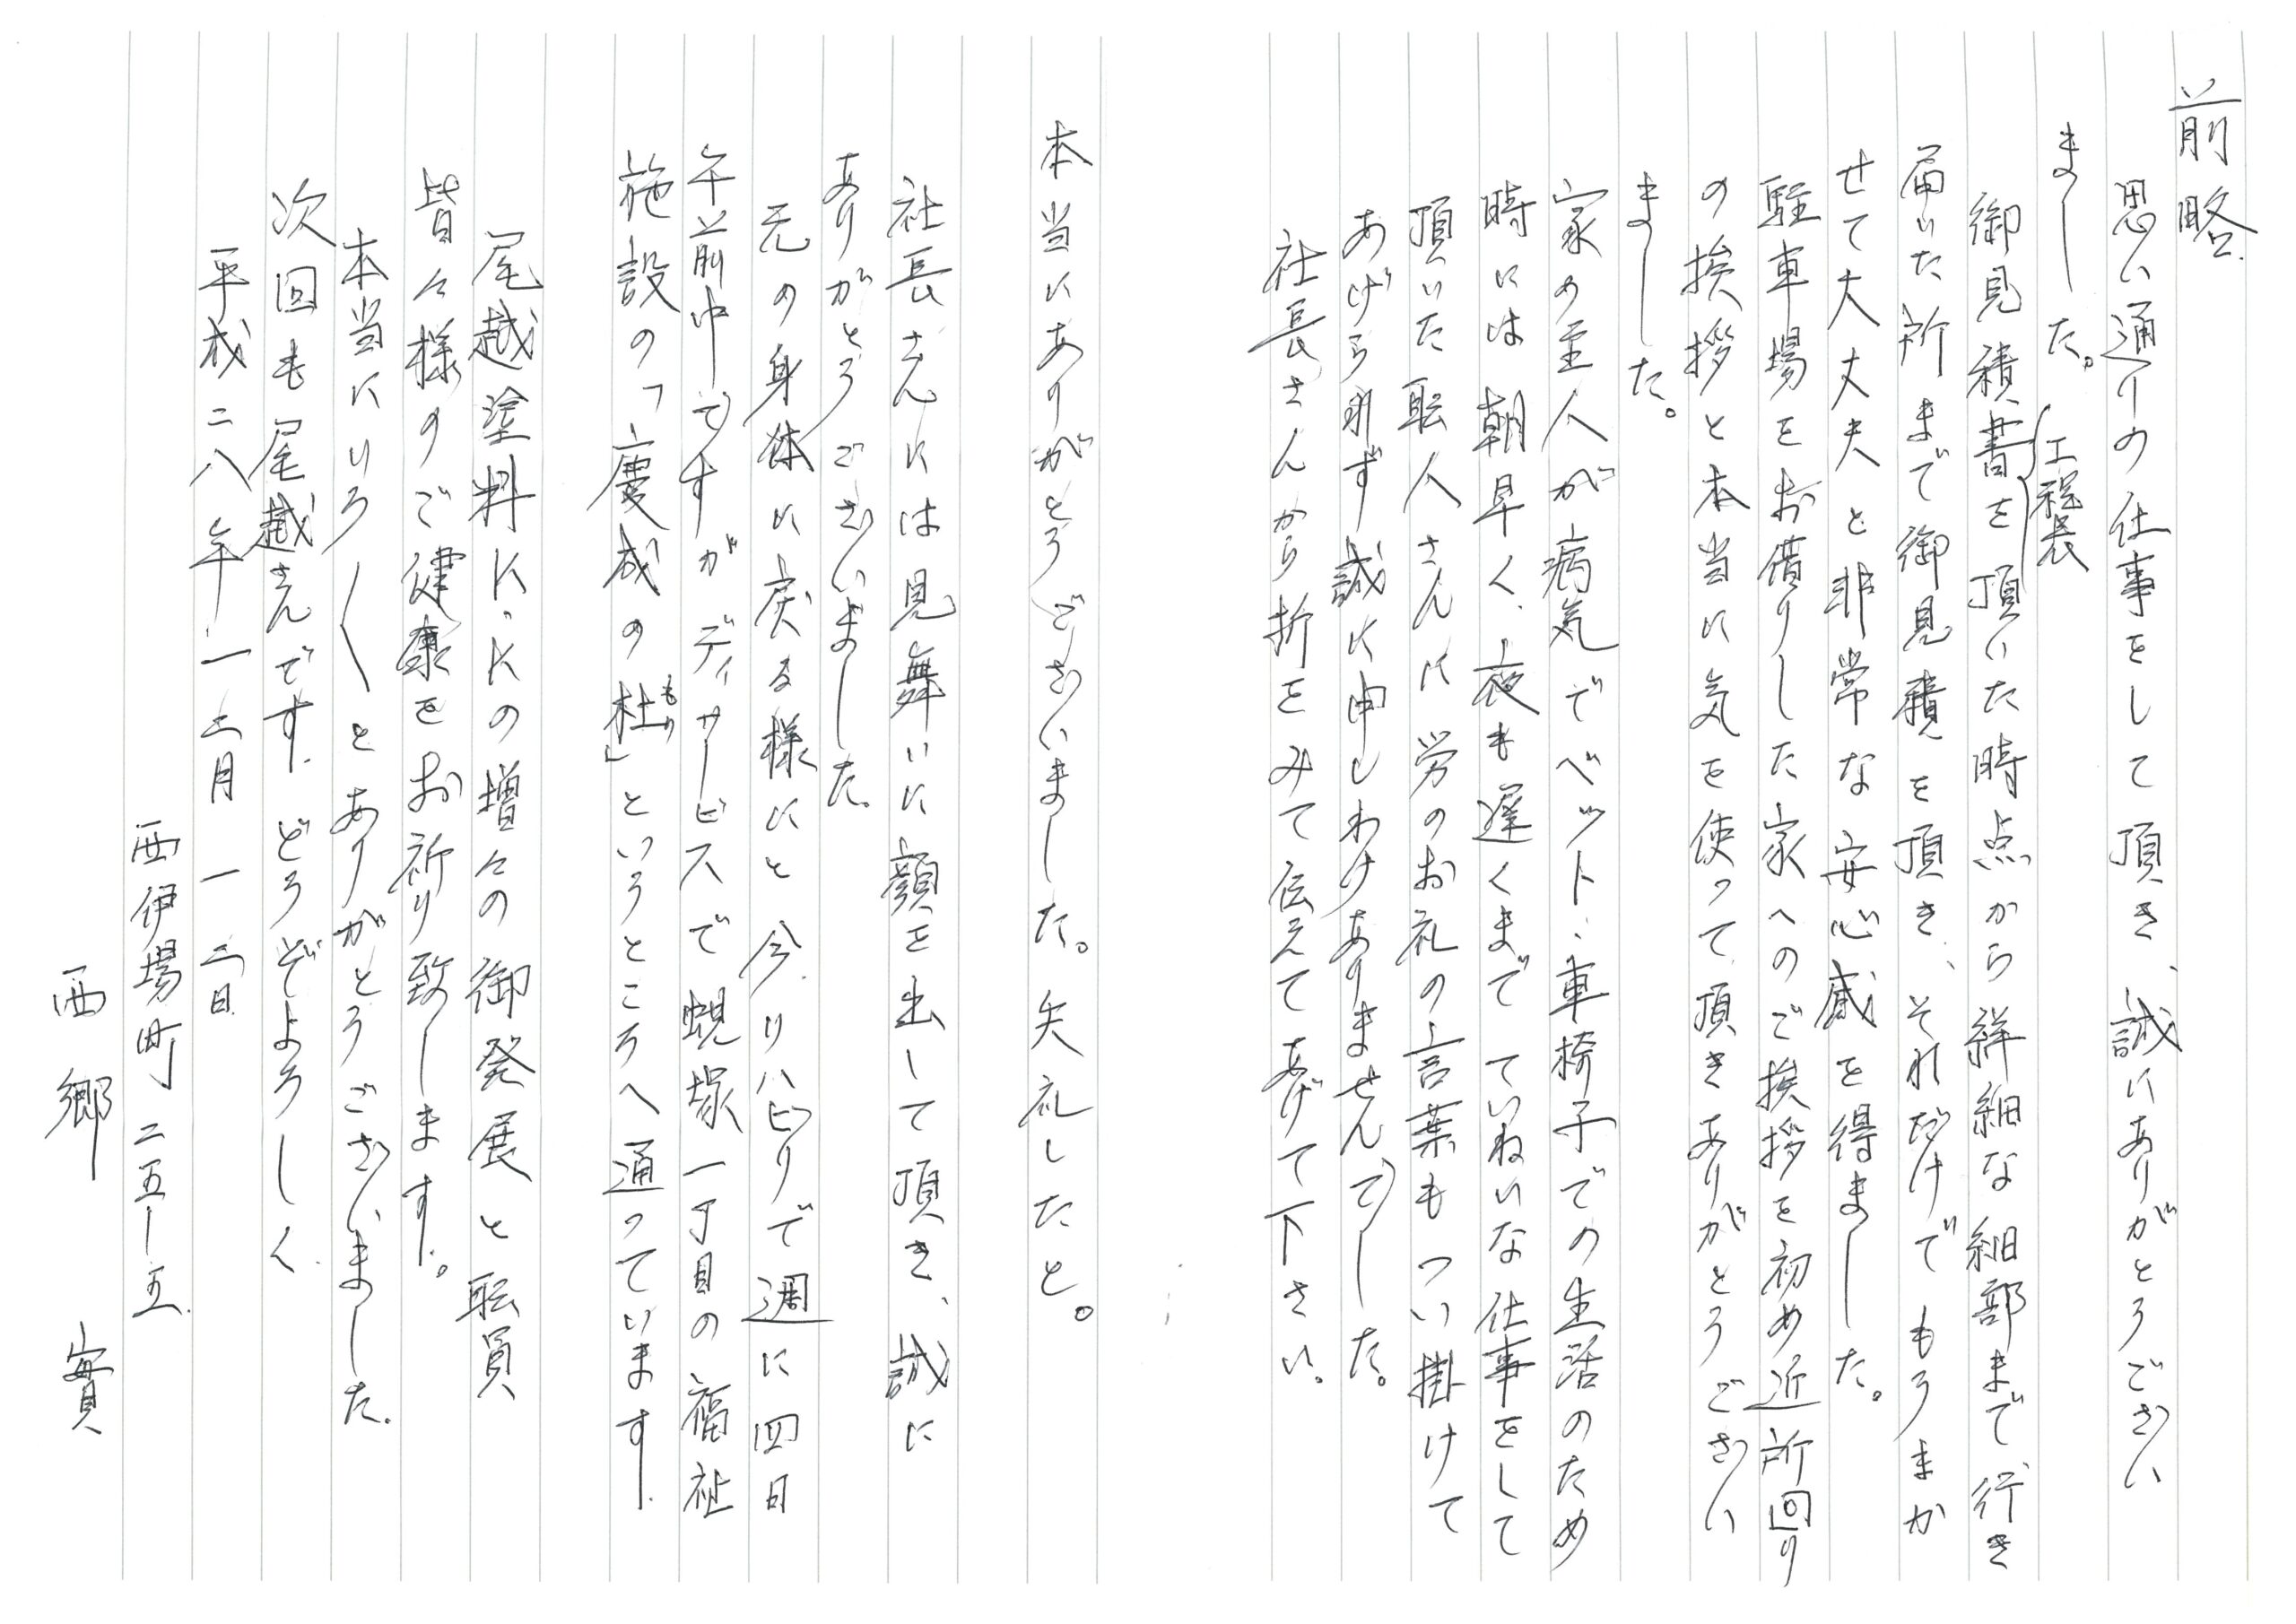 前略
思い通りの仕事をして頂き、誠にありがとうござい
ました。
(工程表)
御見積書を頂いた時点から詳細な細部まで行き
届いた所まで御見積を頂き、それだけでもうまか
せて大丈夫と非常な安心感を得ました。
駐車場をお借りした家へのご挨拶を初め近所回り
の挨拶と本当に気を使って頂きありがとうござい
ました。
家の主人が病気でベット、車椅子での生活のため
時には朝早く、夜も遅くまでていねいな仕事をして
頂いた職人さんに労のお礼の言葉もつい掛けて
あげられず誠に申しわけありませんでした。
社長さんから折をみて伝えてあげて下さい。
本当にありがとうございました。失礼したと。
社長さんには見舞いに顔を出して頂き、誠に
ありがとうございました。
元の身体に戻る様にと今リハビリで週に四日
午前中ですがディサービスで蜆塚一丁目の福祉
施設の「慶成の杜」というところへ通っています.
もり
尾越塗料K.Kの増々の御発展と職員
皆々様のご健康をお祈り致します。
本当にいろ〱とありがとうございました.
次回も尾越さんです.どうぞよろしく.
平成二八年一二月一二日
西伊場町二五ー五.
西郷 實